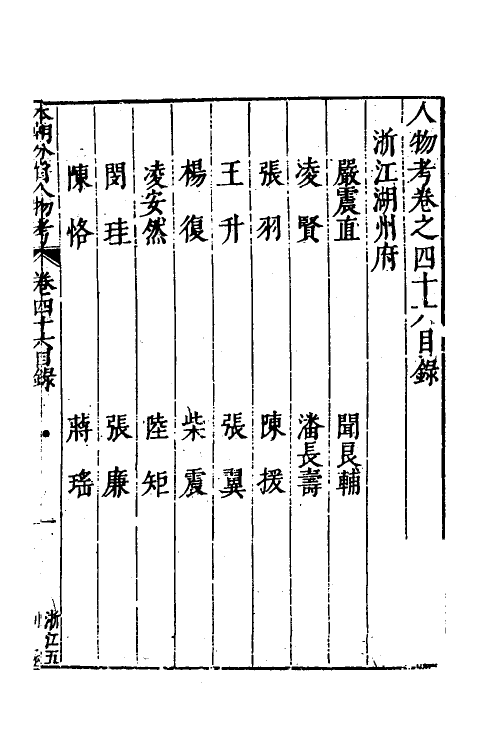 人物考卷之四十六目錄
浙江湖州府
嚴震直 聞良輔
凌賢 潘長壽
張羽 陳援
王升 張翼
楊復 柴震
凌安然 陸矩
閔珪 張廉
陳恪 蔣瑤
本朝分省人物考 卷四十六目錄 一
浙江五